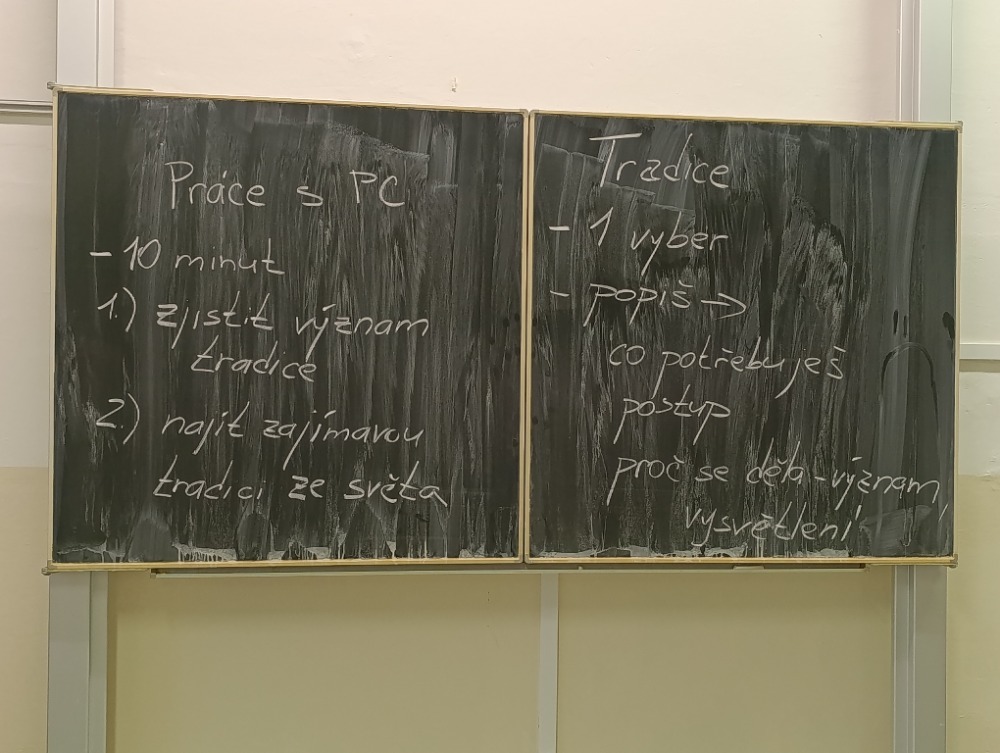 Práce s PC
- 10 minut
1.) zjistit význam
tradice
2.) najít zajímavou
tradici ze světa
Tradice
- 1 vyber
- popiš →
co potřebuješ
postup
proč se děla - význam,
vysvětlení